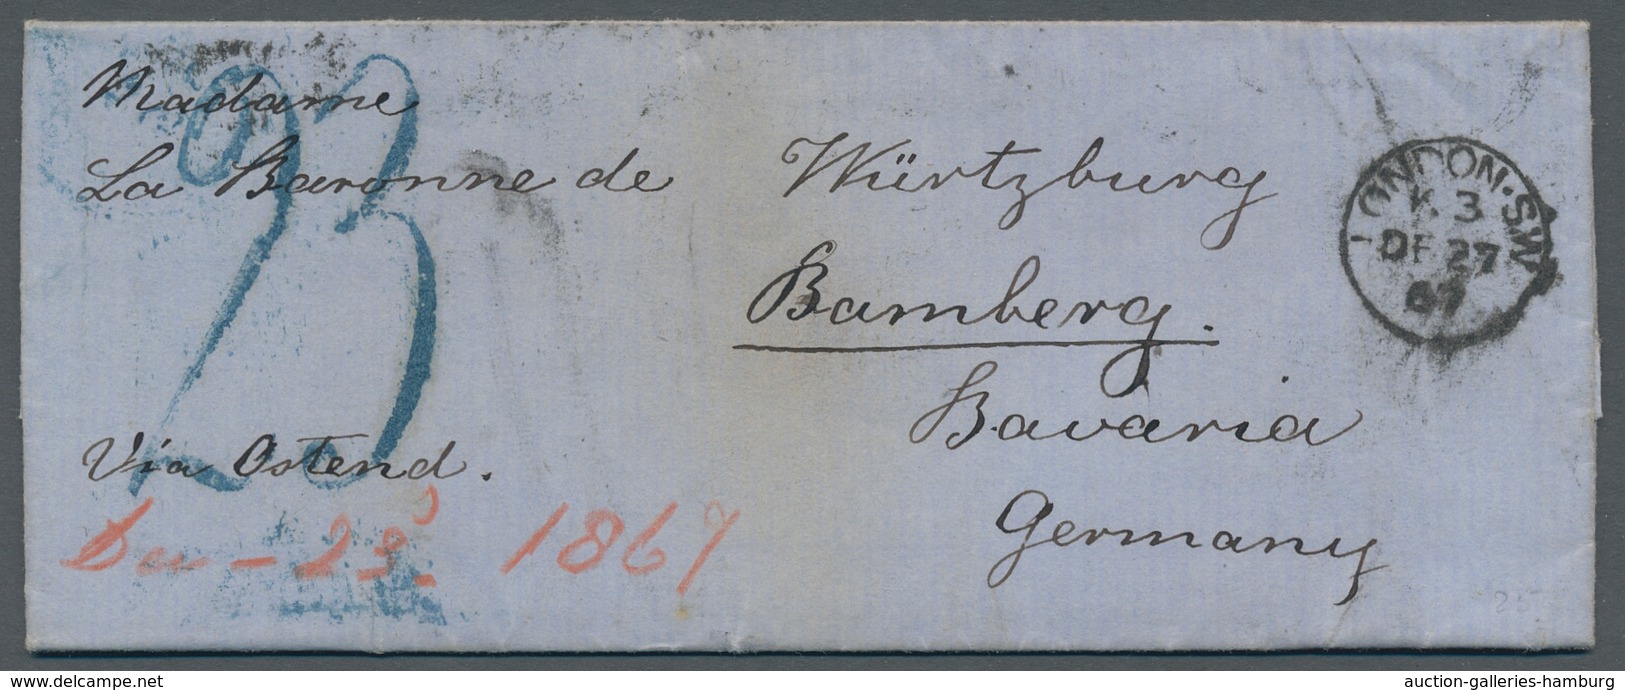 Madame
La Baronne de Würtzburg
Bamberg.
Bavaria
Germany
Via Ostend.
23
1867
LONDON·S.W
K 3
DE 27
67
25
delcampe.net
auction-galleries-hamburg